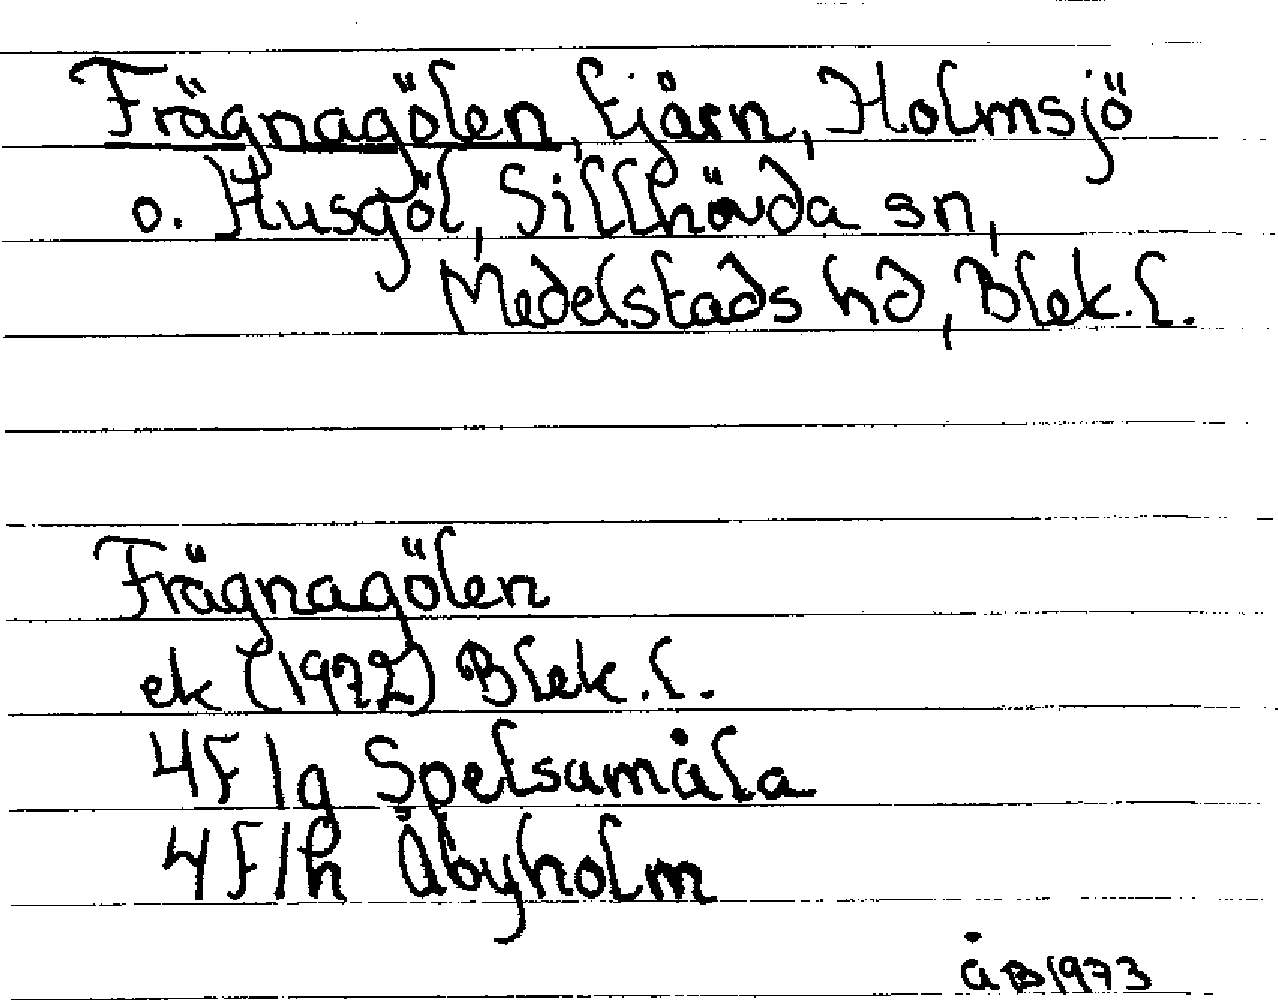 Frägnagölen, tjärn, Holmsjö
o. Husgöl, Sillhövda sn,
Medelstads hd, Blek. l.
Frägnagölen
ek (1972) Blek. l.
4F 1g Spetsamåla
4F 1h Åbyholm
ÅB 1973